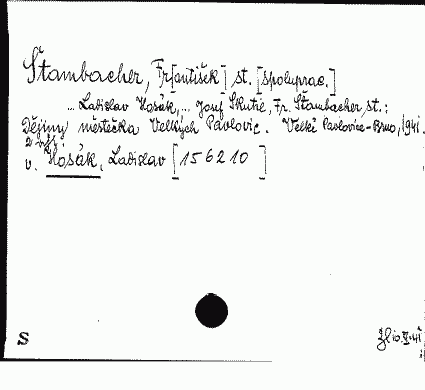 Štambacher, Fr[antišek] st. [spoluprac.]
... Ladislav Hosák, ... Josef Skutil, Fr. Štambacher, st.:
Dějiny městečka Velkých Pavlovic. Velké Pavlovice-Brno, 1941.
v. Hosák, Ladislav [156210]
S